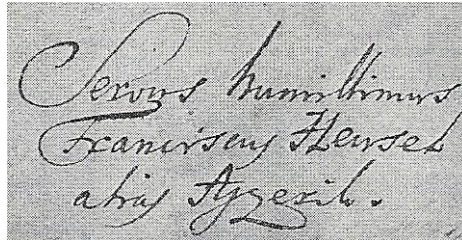 Servus humillimus
Franciscus Hensel
alias